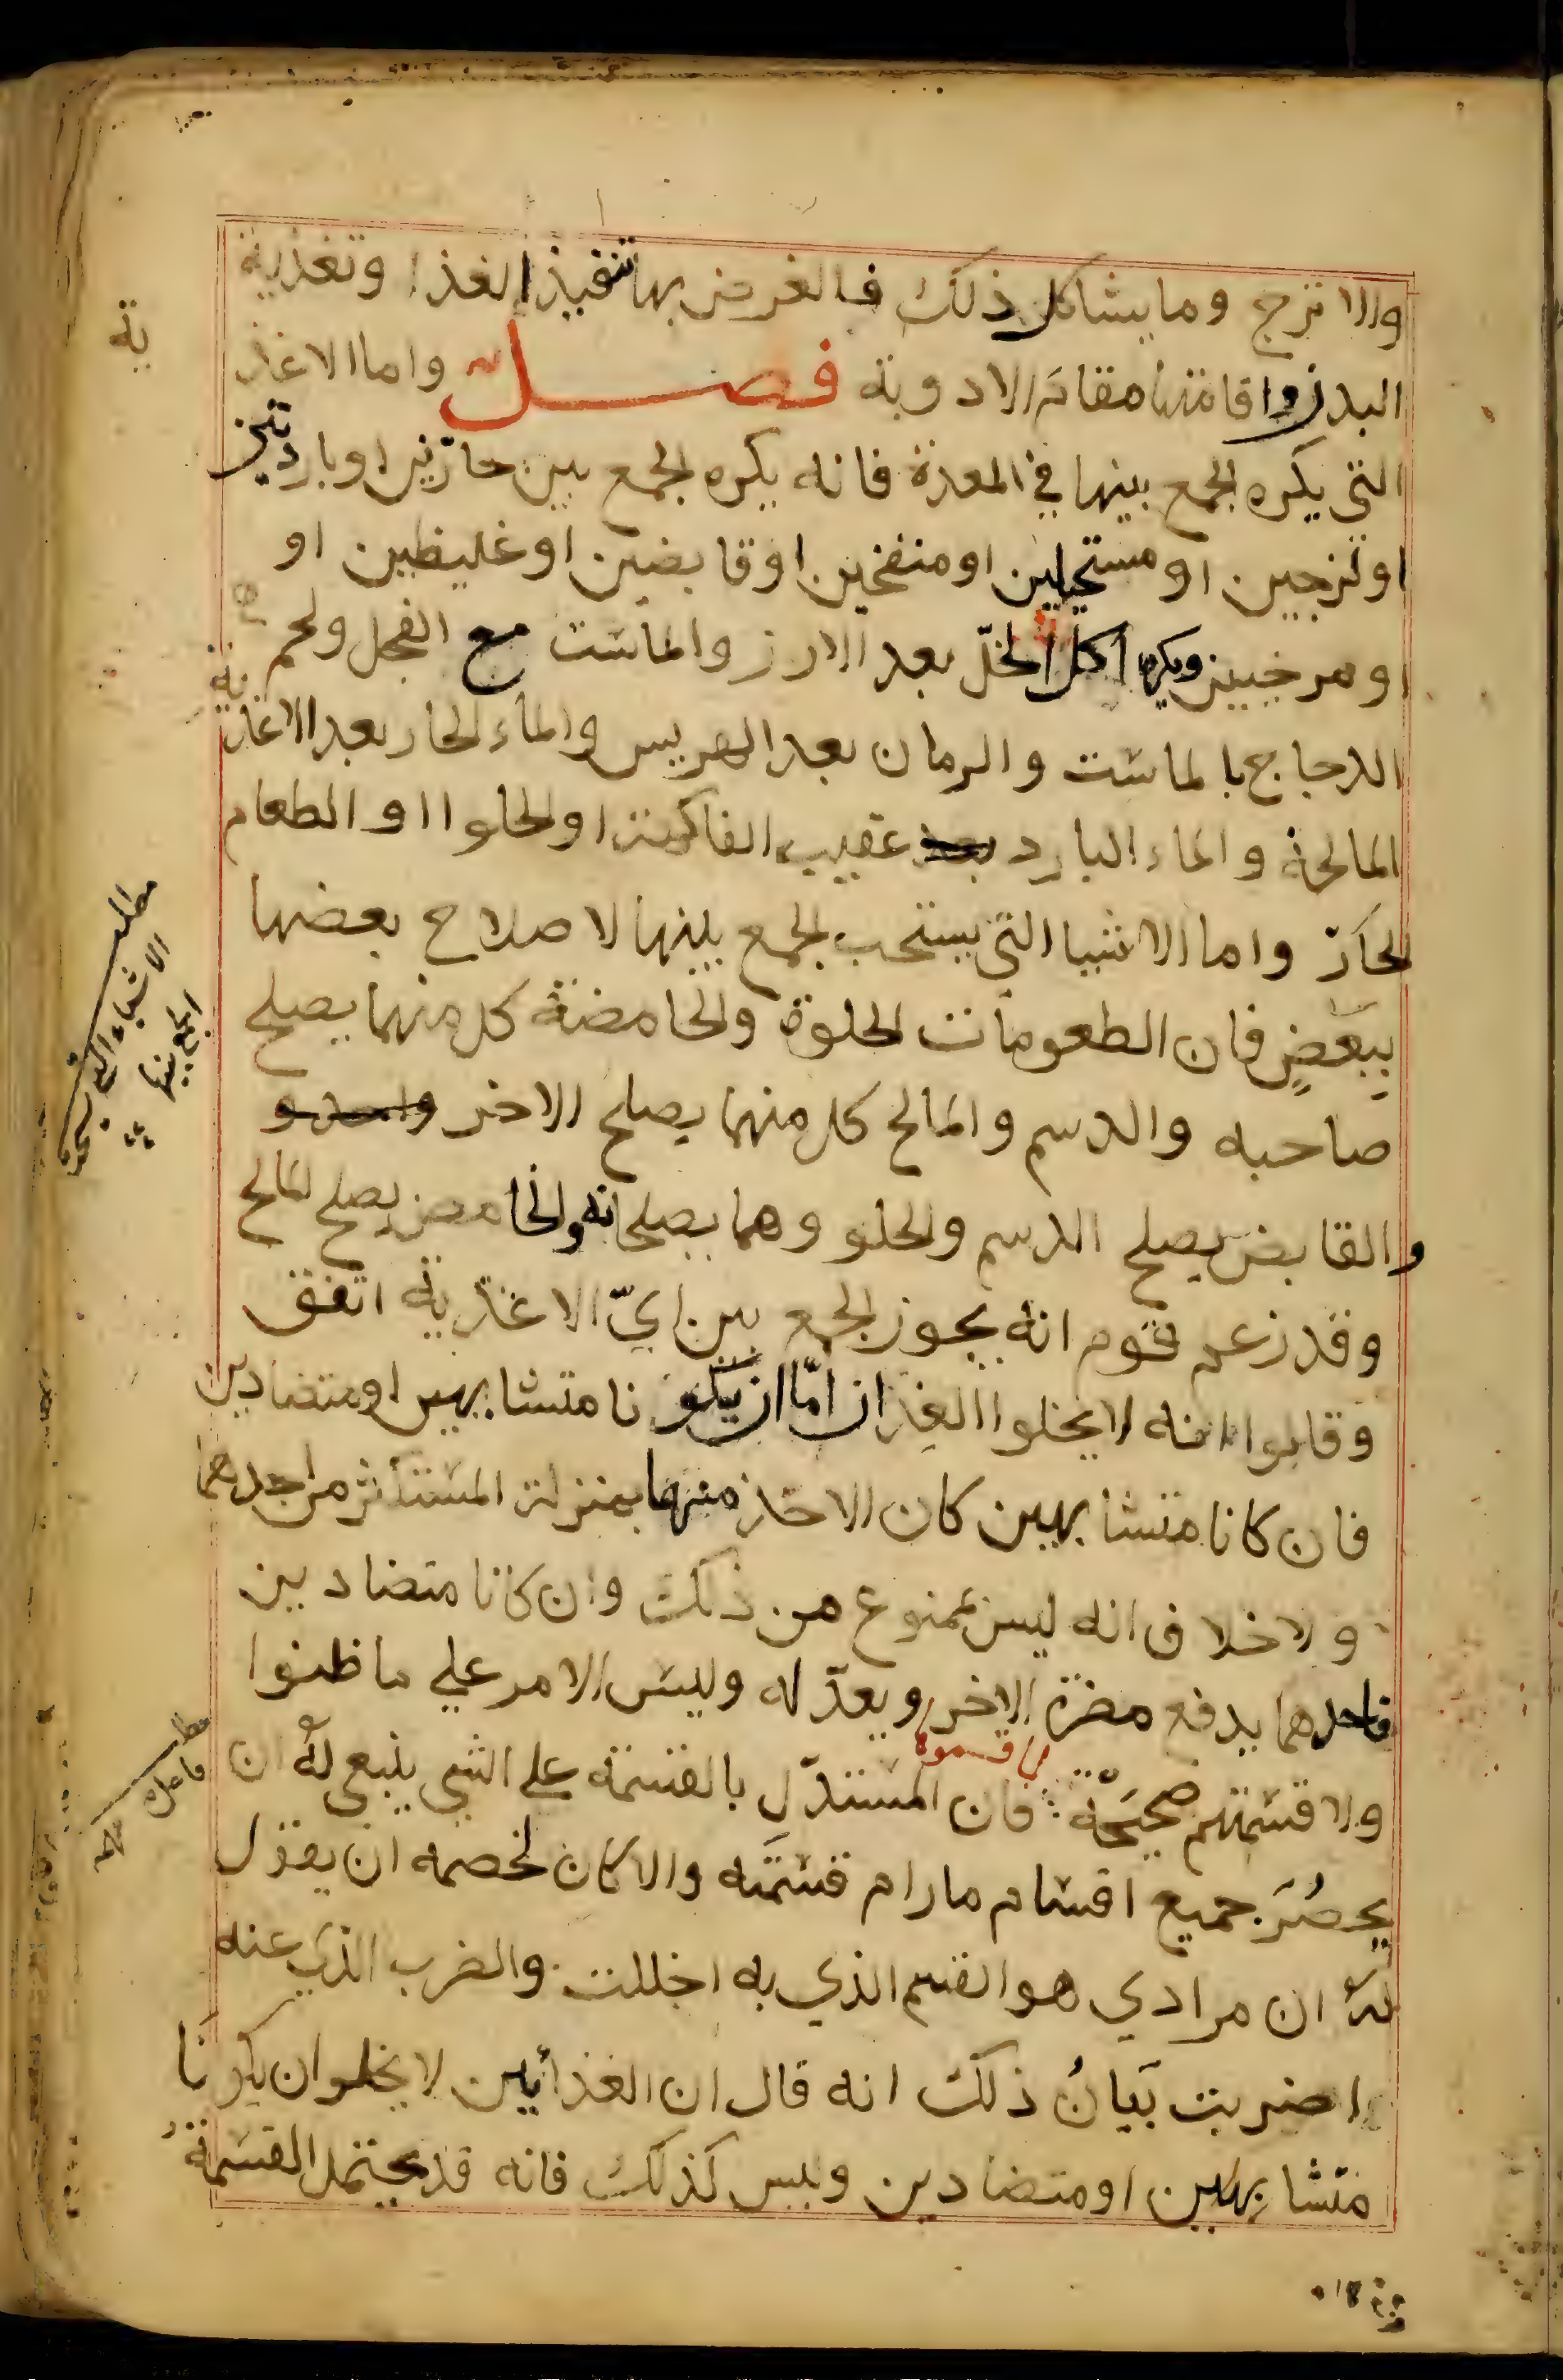 والاترج وما يشاكل ذلك فالغرض بها تنفيذ الغذا وتغذية
البدن واقامتها مقام الادوية فصل واما الاغذ
ية
التي يكره الجمع بينها في المعدة فانه يكره الجمع بين حارّين او باردين
او لزجين او مستحيلين او منفخين او قابضين او غليظين او
او مرخيين ويكره اكل الخلّ بعد الارز والماست مع الفجل ولحم
الدجاج بالماست والرمان بعد الهريس والماء الحار بعد الاغذ
ية
المالحة والماء البارد بعد عقيب الفاكهة او الحلوا او الطعام
الحارّ واما الاشيا التي يستحب الجمع بينها لاصلاح بعضها
ببعضٍ فان الطعومات الحلوة والحامضة كل منهما يصلح
صاحبه والدسم والمالح كل منهما يصلح الاخر
والقابض يصلح الدسم والحلو وهما يصلحانه والحامض يصلح المالح
وقد زعم قوم انه يجوز الجمع بين ايّ الاغذية اتفق
وقالوا انه لا يخلوا الغذان امّا ان يكونا متشابهين او متضادين
فان كانا متشابهين كان الاخذ منهما بمنزلة المستكثر من احدهما
ولا خلاف انه ليس بممنوع من ذلك وان كانا متضادين
فاحدهما يدفع مضرة الاخر ويعدّله وليس الامر علي ما ظنوا
ولا قسمتهم صحيحة فان المستدّل بالقسمة علي الشي ينبغي له ان
يحصُرَ جميع اقسام ما رام قسمَته والا كان لخصمه ان يقول
له ان مرادي هو القسم الذي به اخللت والضرب الذي عنه
اضربت بَيانُ ذلك انه قال ان الغذأيين لا يخلو ان يكونا
متشابهين او متضادين وليس كذلك فانه قد يحتمل القسمةُ
مطلب
الاشياء التي يستحب
الجمع بينها